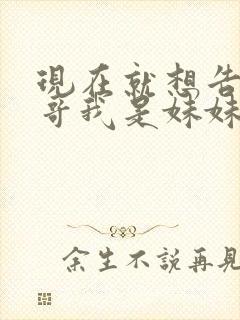 現在就想告
哥我是妹妹
余生不說再見